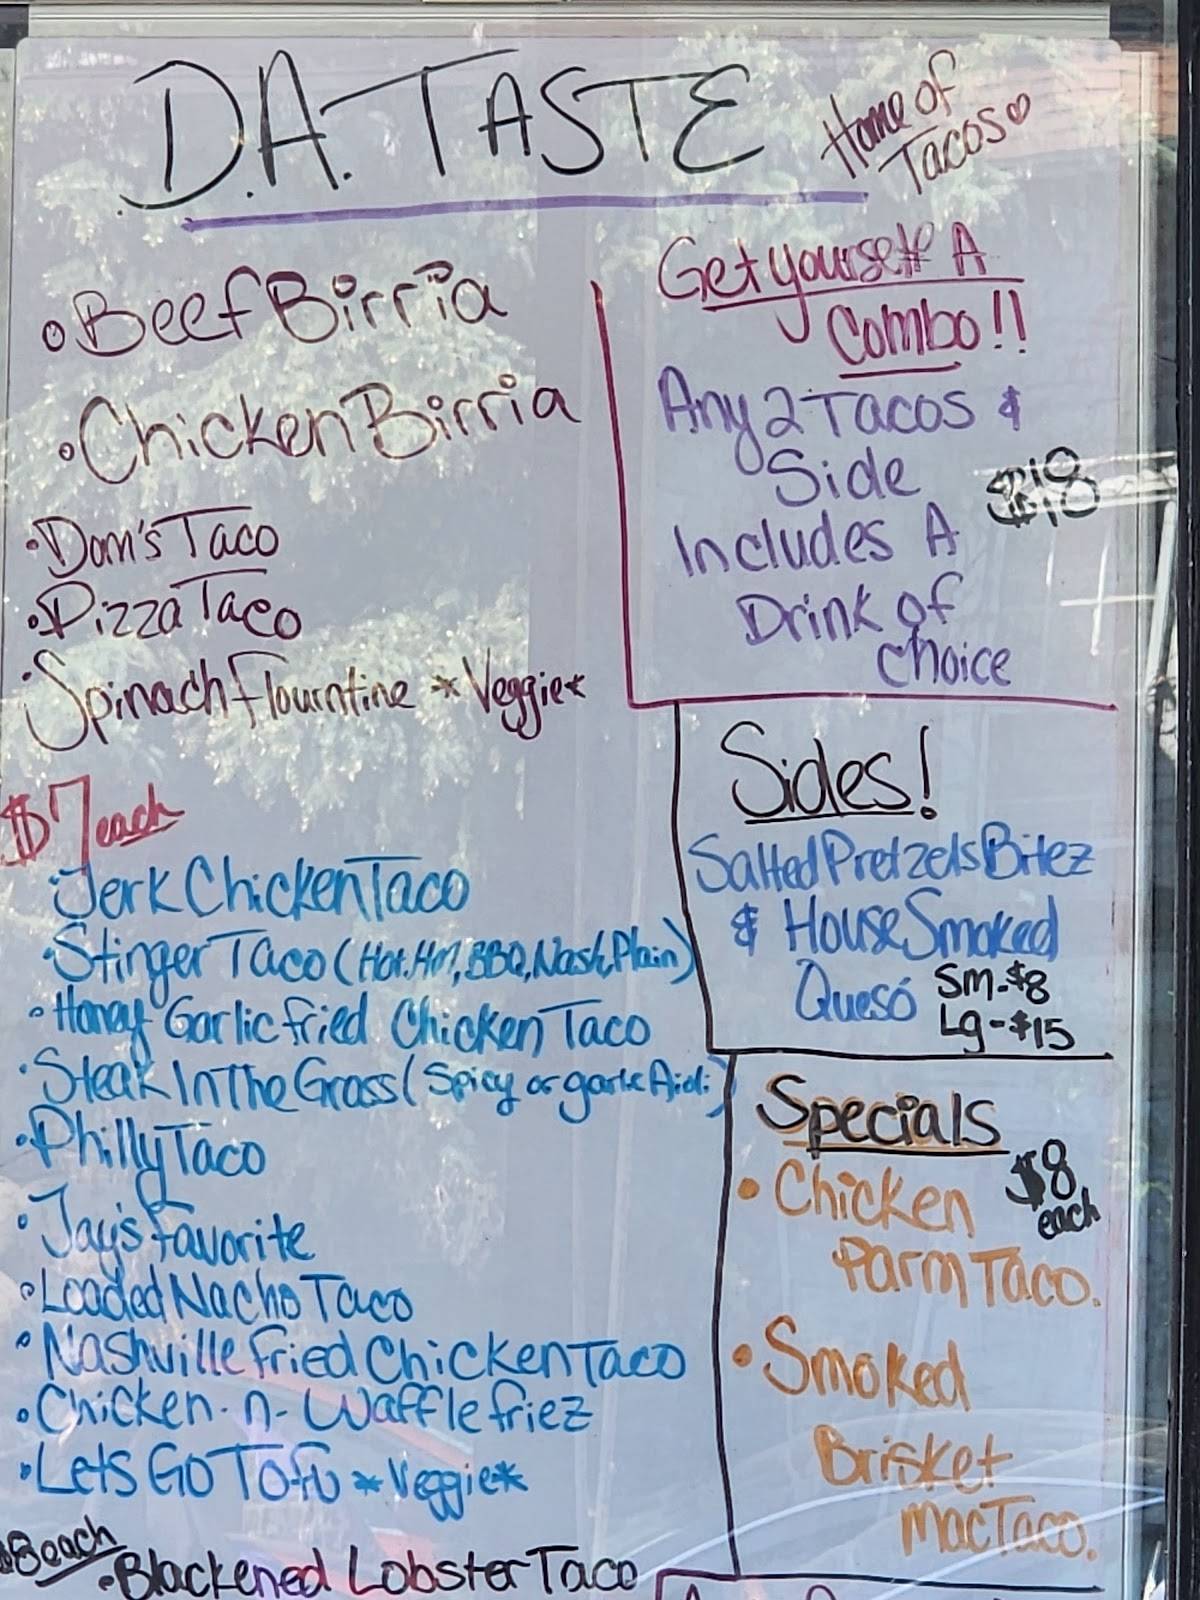 D.A. TASTE
Home of
Tacos
Beef Birria
Chicken Birria
Dom's Taco
Pizza Taco
Spinach Flourntine *Veggie*
$7 each
Jerk Chicken Taco
Stinger Taco (Hot, Hn, BBQ, Nash, Plain)
Honey Garlic fried Chicken Taco
Steak In The Grass (Spicy or garlic Aioli)
Philly Taco
Jay's Favorite
Loaded Nacho Taco
Nashville Fried Chicken Taco
Chicken-n-Waffle friez
Lets GO Tofu *Veggie*
$8 each
Blackened Lobster Taco
Get yourself A
Combo!!
Any 2 Tacos &
Side
$18
Includes A
Drink of
Choice
Sides!
Salted Pretzels Bitez
& House Smoked
Quesó
Sm-$8
Lg-$15
Specials
$8
each
Chicken
Parm Taco.
Smoked
Brisket
Mac Taco.